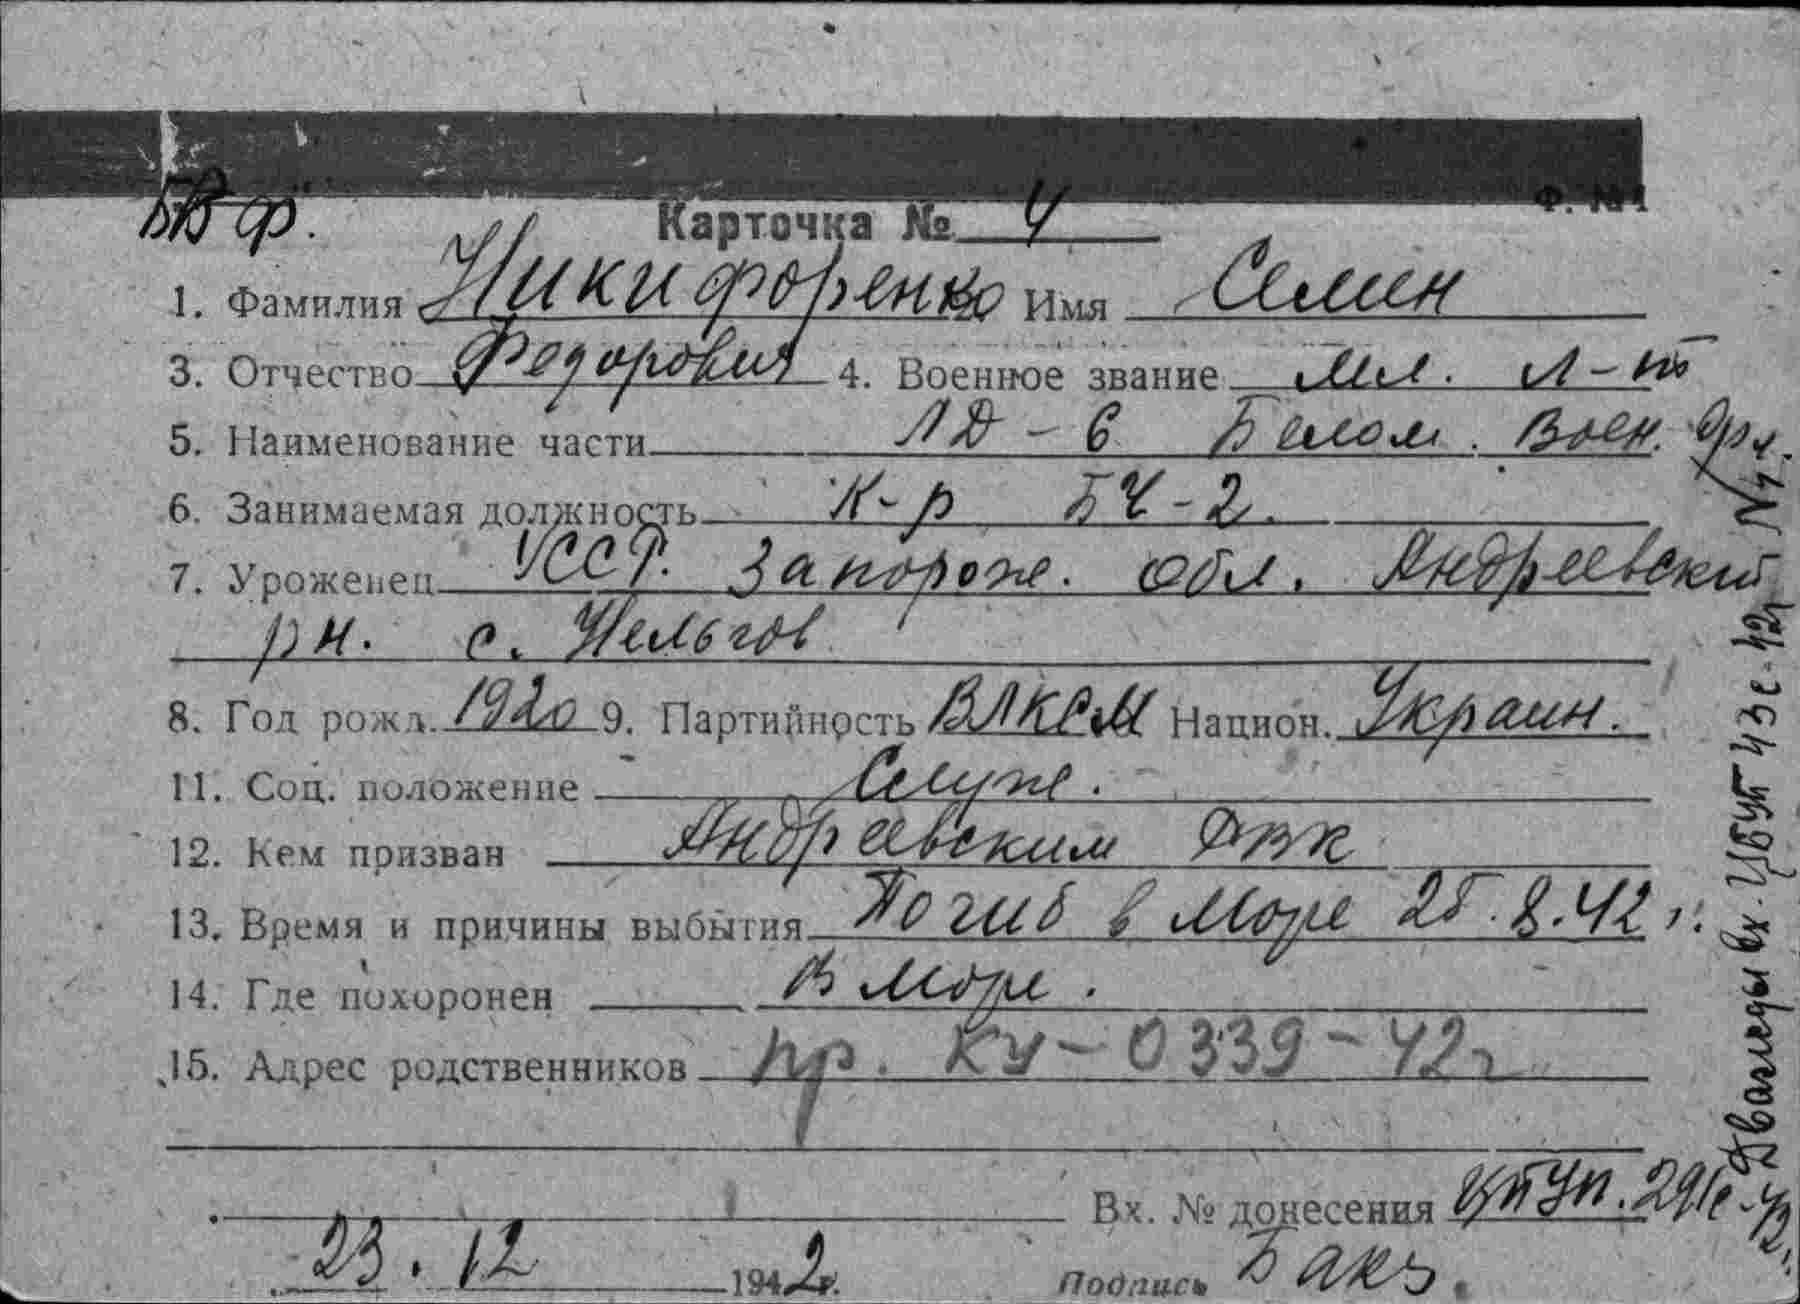 Ф. №1
БВФ.
Карточка № 4
1. Фамилия Никифоренко Имя Семен
3. Отчество Федорович 4. Военное звание мл. л-т
5. Наименование части ЛД-6 Белом. Воен. фл.
6. Занимаемая должность К-р БЧ-2.
7. Уроженец УССР. Запорож. обл. Андреевский
рн. с. Нельгов
8. Год рожд. 1920 9. Партийность ВЛКСМ Национ. Украин.
11. Соц. положение Служ.
12. Кем призван Андреевским РВК
13. Время и причины выбытия Погиб в море 25.8.42 г.
14. Где похоронен В море.
15. Адрес родственников пр. КУ-0339-42г
Вх. № донесения 291с-42.
23.12 1942г. Подпись
Дважды вх. 43с-42г